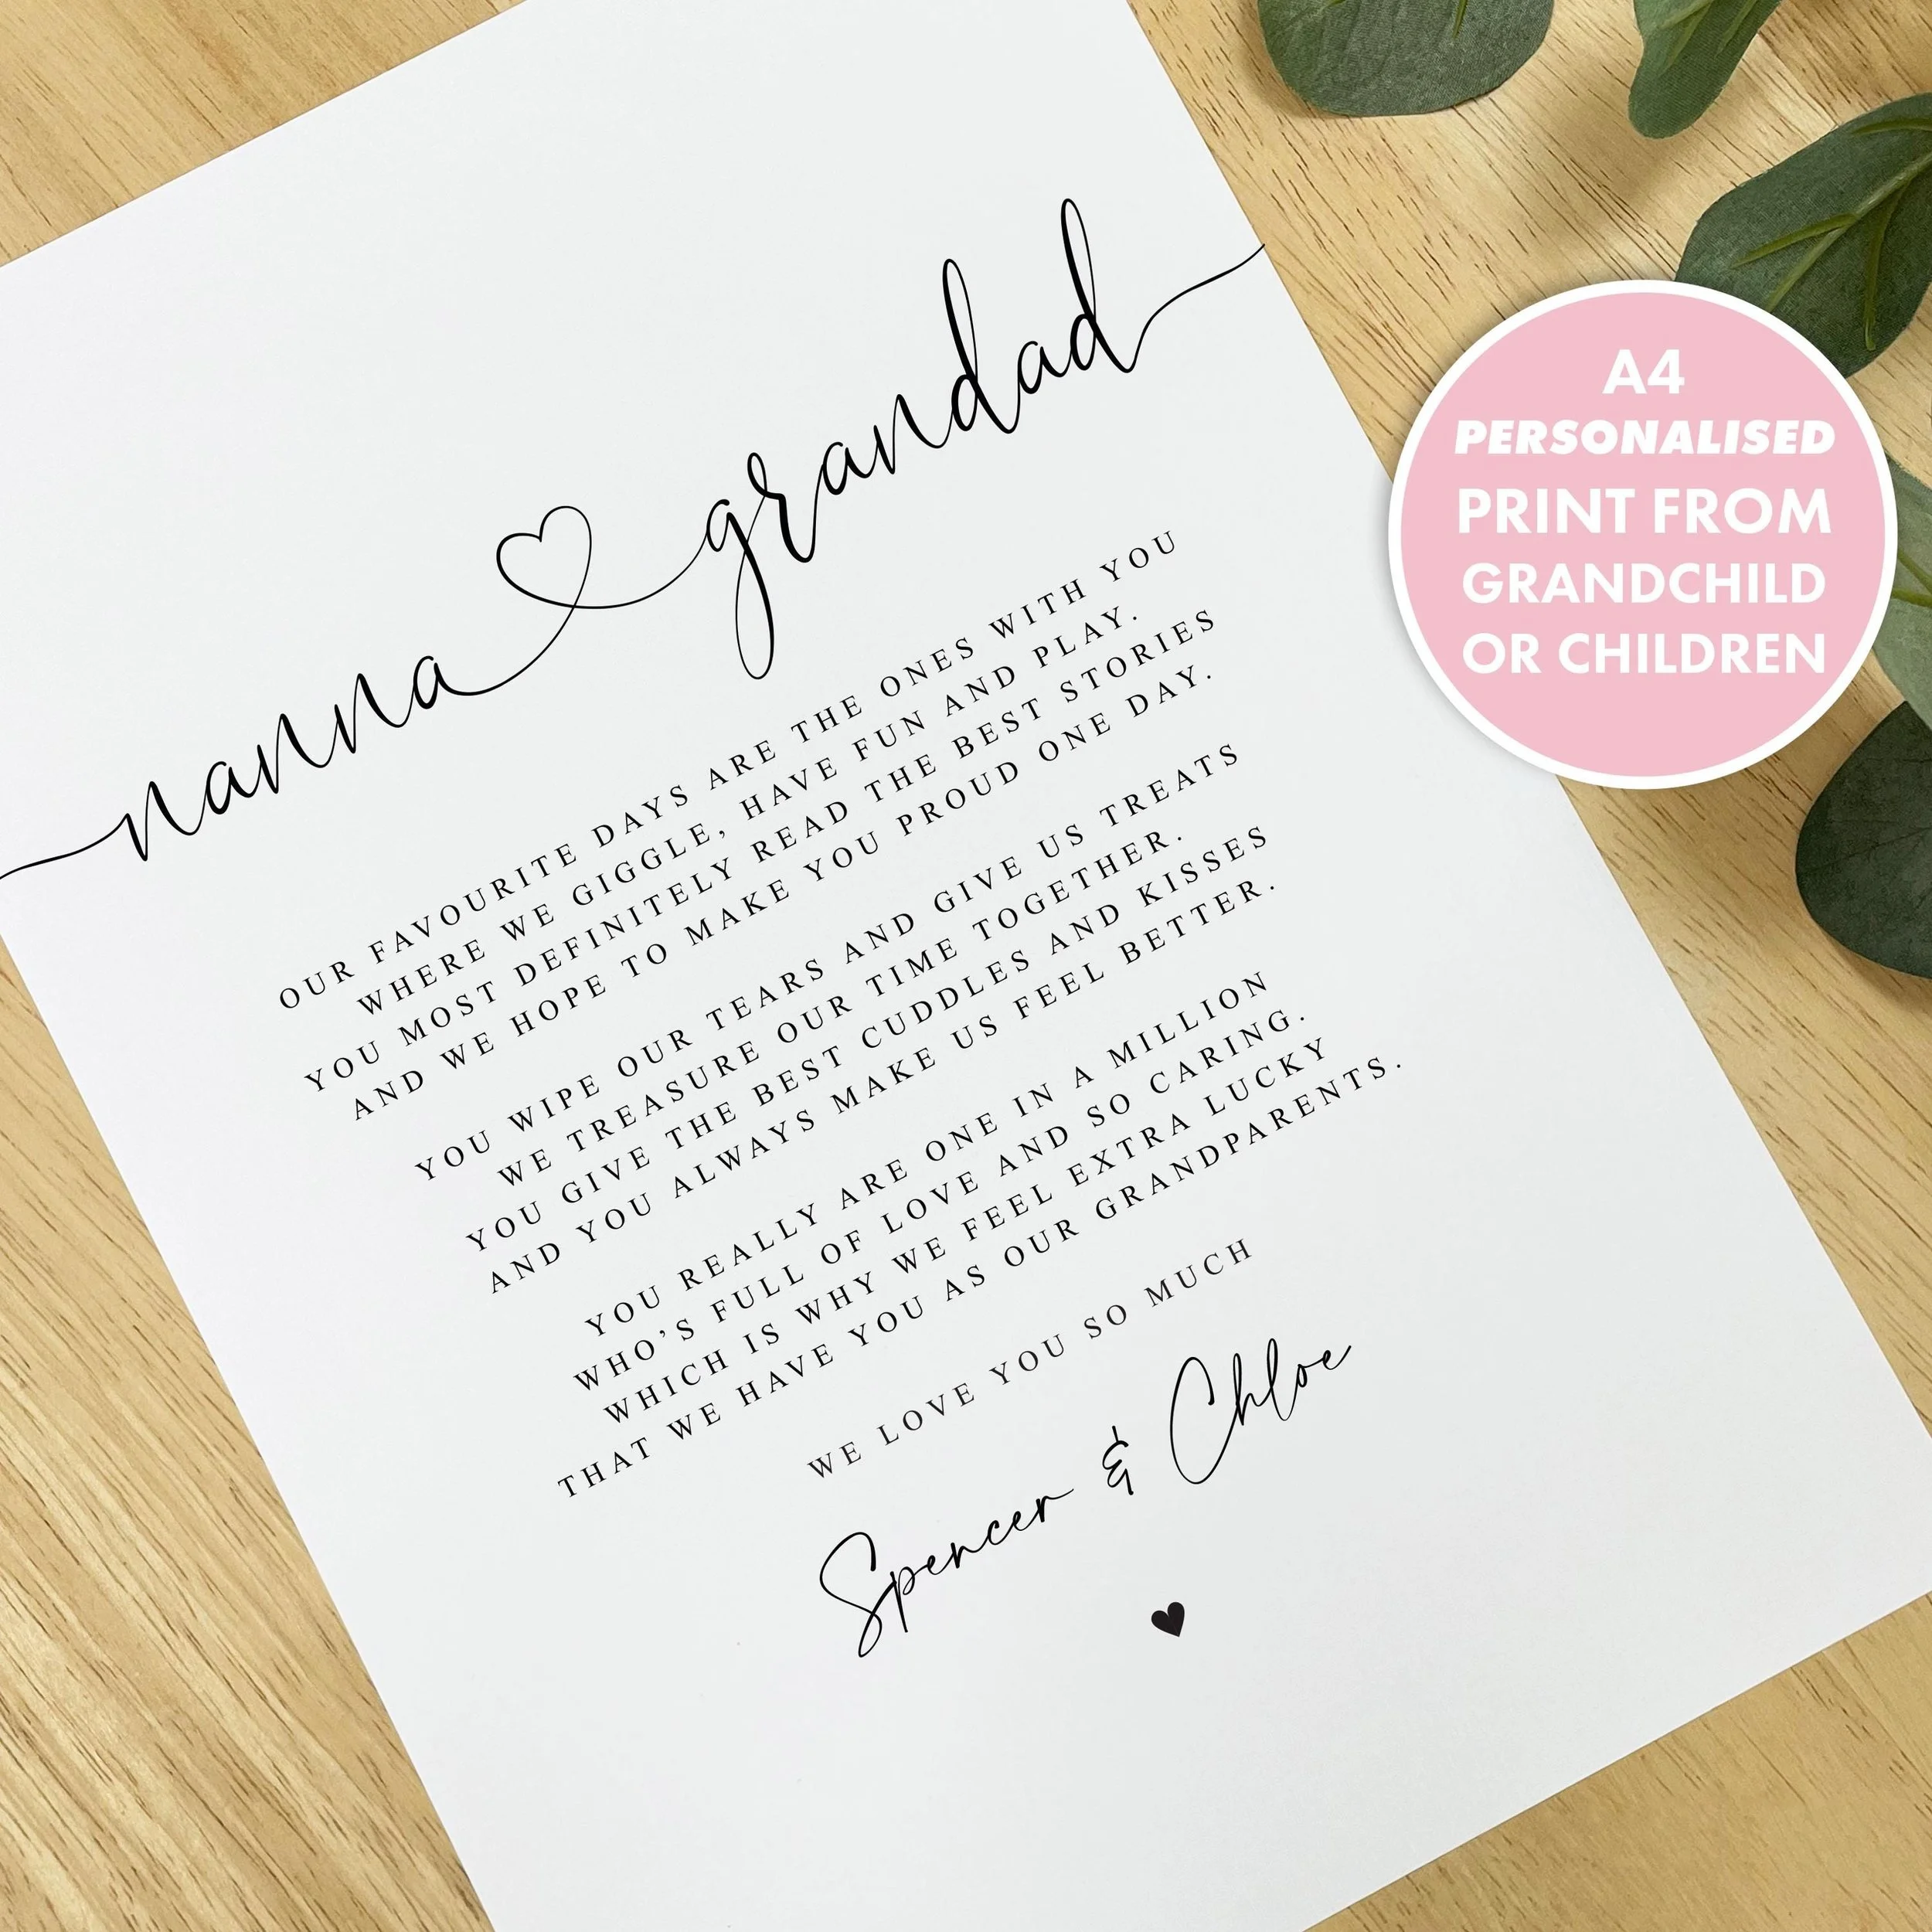 nanna grandad
OUR FAVOURITE DAYS ARE THE ONES WITH YOU
WHERE WE GIGGLE, HAVE FUN AND PLAY.
YOU MOST DEFINITELY READ THE BEST STORIES
AND WE HOPE TO MAKE YOU PROUD ONE DAY.
YOU WIPE OUR TEARS AND GIVE US TREATS
WE TREASURE OUR TIME TOGETHER.
YOU GIVE THE BEST CUDDLES AND KISSES
AND YOU ALWAYS MAKE US FEEL BETTER.
YOU REALLY ARE ONE IN A MILLION
WHO'S FULL OF LOVE AND SO CARING.
WHICH IS WHY WE FEEL EXTRA LUCKY
THAT WE HAVE YOU AS OUR GRANDPARENTS.
WE LOVE YOU SO MUCH
Spencer & Chloe
A4
PERSONALISED
PRINT FROM
GRANDCHILD
OR CHILDREN